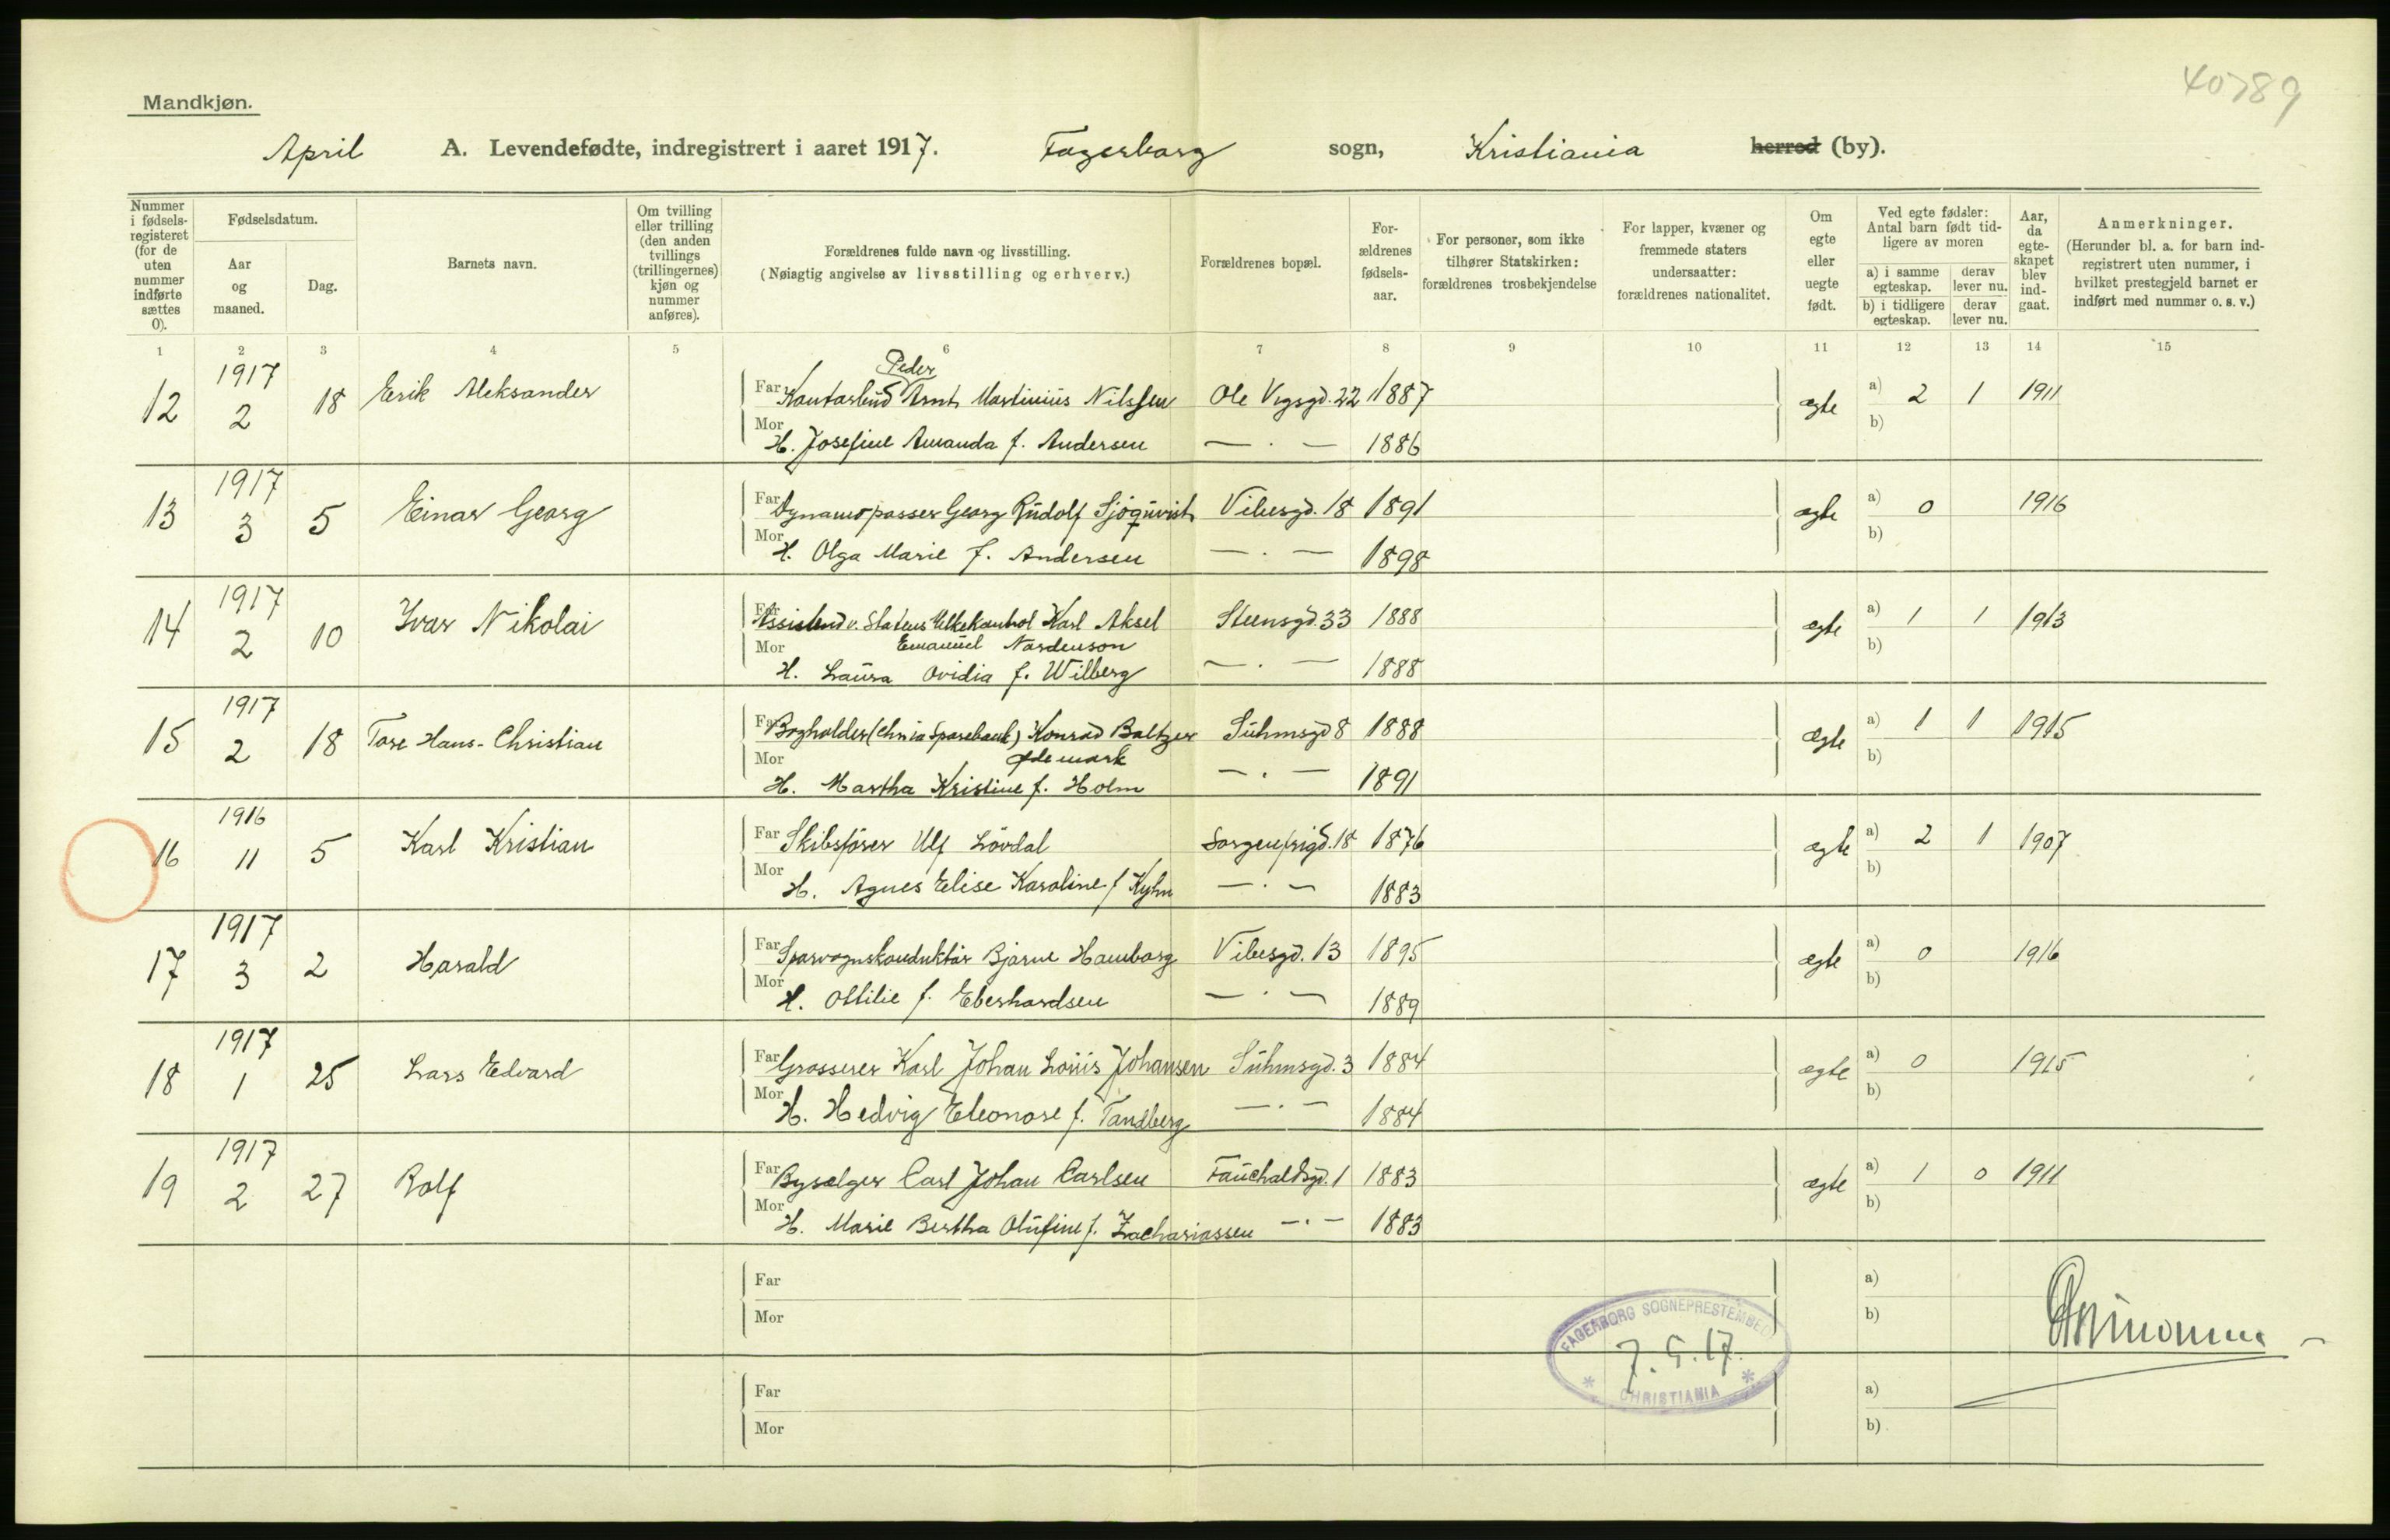 40789
Mandkjøn.
April A. Levendefødte, indregistrert i aaret 1917. Fagerborg sogn, Kristiania herred (by).
Nummer i fødselsregisteret (for de uten nummer indførte sættes 0).
Fødselsdatum.
Aar og maaned.
Dag.
Barnets navn.
Om tvilling eller trilling (den anden tvillings (trillingernes) kjøn og nummer anføres).
Forældrenes fulde navn og livsstilling.
(Nøiagtig angivelse av livsstilling og erhverv.)
Forældrenes bopæl.
Forældrenes fødselsaar.
For personer, som ikke tilhører Statskirken: forældrenes trosbekjendelse
For lapper, kvæner og fremmede staters undersaatter: forældrenes nationalitet.
Om egte eller uegte født.
Ved egte fødsler: Antal barn født tidligere av moren
a) i samme egteskap. derav lever nu.
b) i tidligere egteskap. derav lever nu.
Aar, da egteskapet blev indgaat.
Anmerkninger.
(Herunder bl. a. for barn indregistrert uten nummer, i hvilket prestegjeld barnet er indført med nummer o. s. v.)
1 2 3 4 5 6 7 8 9 10 11 12 13 14 15
12 1917 2 18 Erik Aleksander
Peder
Far Kontorbud Arnt Martinius Nilssen Ole Vigsgd. 22 1887 ægte a) 2 1 1911
Mor H. Josefine Amanda f. Andersen — . — 1886 b)
13 1917 3 5 Einar Georg
Far Dynamopasser Georg Rudolf Sjöqvist Vibesgd. 18 1891 ægte a) 0 1916
Mor H. Olga Marie f. Andersen — . — 1898 b)
14 1917 2 10 Ivar Nikolai
Far Assistend v. Statens Karl Aksel Steensgd. 33 1888 ægte a) 1 1 1913
Emanuel Nordenson
Mor H. Laura Ovidia f. Wilberg — . — 1888 b)
15 1917 2 18 Tore Hans-Christian
Far Bogholder (Chnia Sparebank) Konrad Baltzer Suhmsgd 8 1888 ægte a) 1 1 1915
Ødemark
Mor H. Martha Kristine f. Holm — . — 1891 b)
16 1916 11 5 Karl Kristian
Far Skibsfører Ulf Lövdal Sorgenfrigd. 18 1876 ægte a) 2 1 1907
Mor H. Agnes Elise Karoline f Kyhn — . — 1883 b)
17 1917 3 2 Harald
Far Sporvognskonduktör Bjarne Hamborg Vibesgd. 13 1895 ægte a) 0 1916
Mor H. Ottilie f. Eberhardsen — . — 1889 b)
18 1917 1 25 Lars Edvard
Far Grosserer Karl Johan Louis Johansen Suhmsgd. 3 1884 ægte a) 0 1915
Mor H. Hedvig Eleonore f. Tandberg — . — 1884 b)
19 1917 2 27 Rolf
Far Bysælger Carl Johan Carlsen Fauchaldsgd. 1 1883 ægte a) 1 0 1911
Mor H. Marie Bertha Olufine f. Zachariassen — . — 1883 b)
Far a)
Mor b)
FAGERBORG SOGNEPRESTEMBED
7.5.17.
CHRISTIANIA
Far a)
Mor b)